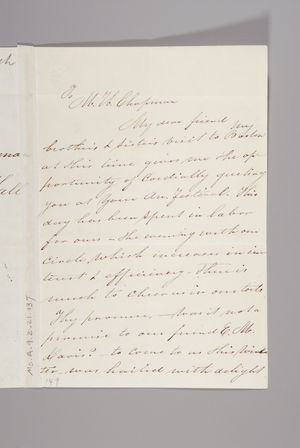 To
M. W. Chapman
My dear friend
My
brothers & sisters visit to Boston
at this time gives me the op-
portunity of cordially greeting
you at your Festival. This
day has been spent in labor
for ours - the evening with our
circle, which increases in in-
terest & efficiency. There is
much to cheer us in our toils
Thy promise, - was it not a
promise to our friend E. M.
Davis? - to come to us this win
ter - was hailed with delight
149
Ms.A.9.2.21.137
all